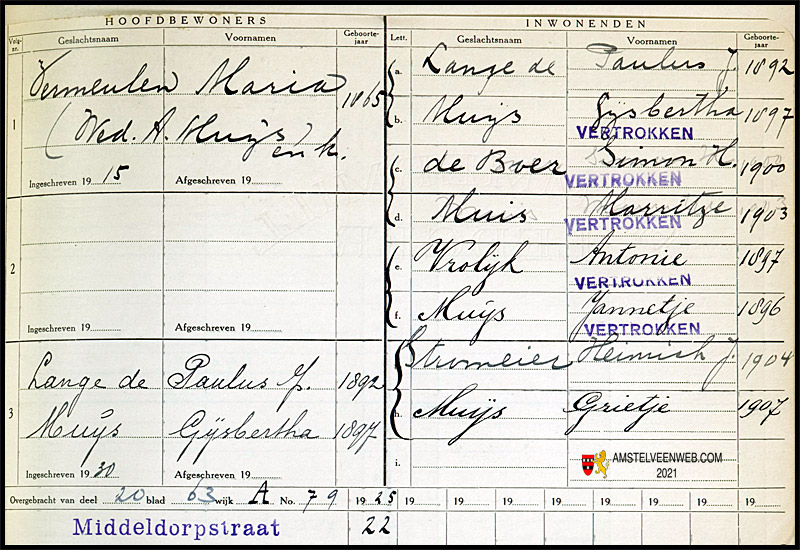 HOOFDBEWONERS
Volg-nr.
Geslachtsnaam
Voornamen
Geboorte-jaar
1
Vermeulen Maria 1865
(Wed. A. Muijs) en k.
Ingeschreven 19 15 Afgeschreven 19
2
Ingeschreven 19 Afgeschreven 19
3
Lange de Paulus J. 1892
Muijs Gijsbertha 1897
Ingeschreven 19 30 Afgeschreven 19
INWONENDEN
Lett.
Geslachtsnaam
Voornamen
Geboorte-jaar
a. Lange de Paulus J. 1892
b. Muijs Gijsbertha 1897
VERTROKKEN
c. de Boer Simon H. 1900
VERTROKKEN
d. Muis Marritje 1903
VERTROKKEN
e. Vrolijk Antonie 1897
VERTROKKEN
f. Muijs Jannetje 1896
VERTROKKEN
Stromeier Heinrich J. 1904
h. Muijs Grietje 1907
i.
AMSTELVEENWEB.COM
2021
Overgebracht van deel 20 blad 63 wijk A No. 79 19 25 19 19 19 19 19 19 19
Middeldorpstraat 22